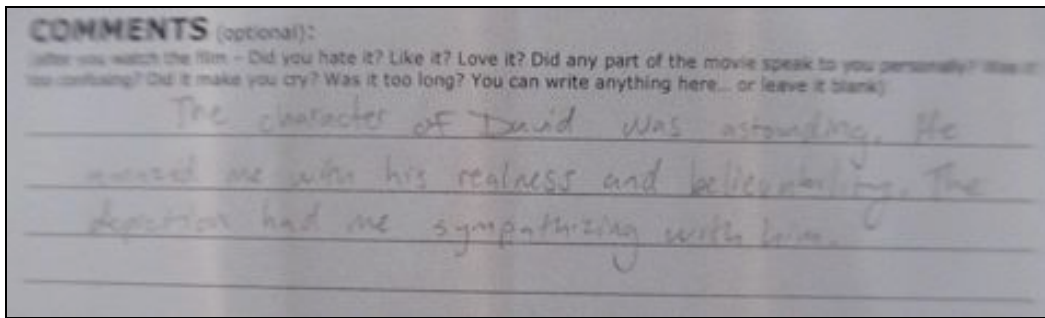 COMMENTS (optional):
(after you watch the film - Did you hate it? Like it? Love it? Did any part of the movie speak to you personally? Was it
too confusing? Did it make you cry? Was it too long? You can write anything here... or leave it blank)
The character of David was astounding. He
amazed me with his realness and believability. The
depiction had me sympathizing with him.